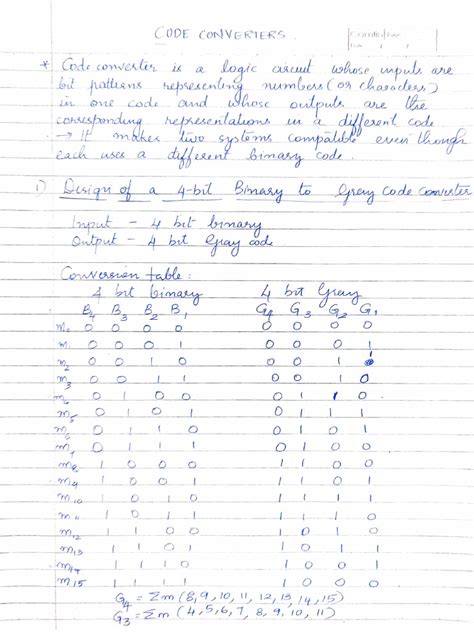 CODE CONVERTERS.
* Code converter is a logic circuit whose inputs are
bit patterns representing numbers (or characters)
in one code and whose outputs are the
corresponding representations in a different code
→ It makes two systems compatible even though
each uses a different binary code.
i) Design of a 4-bit Binary to Gray code converter
Input - 4 bit binary
Output - 4 bit Gray code
Conversion table:
4 bit binary 4 bit Gray
B4 B3 B2 B1 G4 G3 G2 G1
m0 0 0 0 0 0 0 0 0
m1 0 0 0 1 0 0 0 1
m2 0 0 1 0 0 0 1 1
m3 0 0 1 1 0 0 1 0
m4 0 1 0 0 0 1 1 0
m5 0 1 0 1 0 1 1 1
m6 0 1 1 0 0 1 0 1
m7 0 1 1 1 0 1 0 0
m8 1 0 0 0 1 1 0 0
m9 1 0 0 1 1 1 0 1
m10 1 0 1 0 1 1 1 1
m11 1 0 1 1 1 1 1 0
m12 1 1 0 0 1 0 1 0
m13 1 1 0 1 1 0 1 1
m14 1 1 1 0 1 0 0 1
m15 1 1 1 1 1 0 0 0
G4 = Σm (8, 9, 10, 11, 12, 13, 14, 15)
G3 = Σm (4, 5, 6, 7, 8, 9, 10, 11)